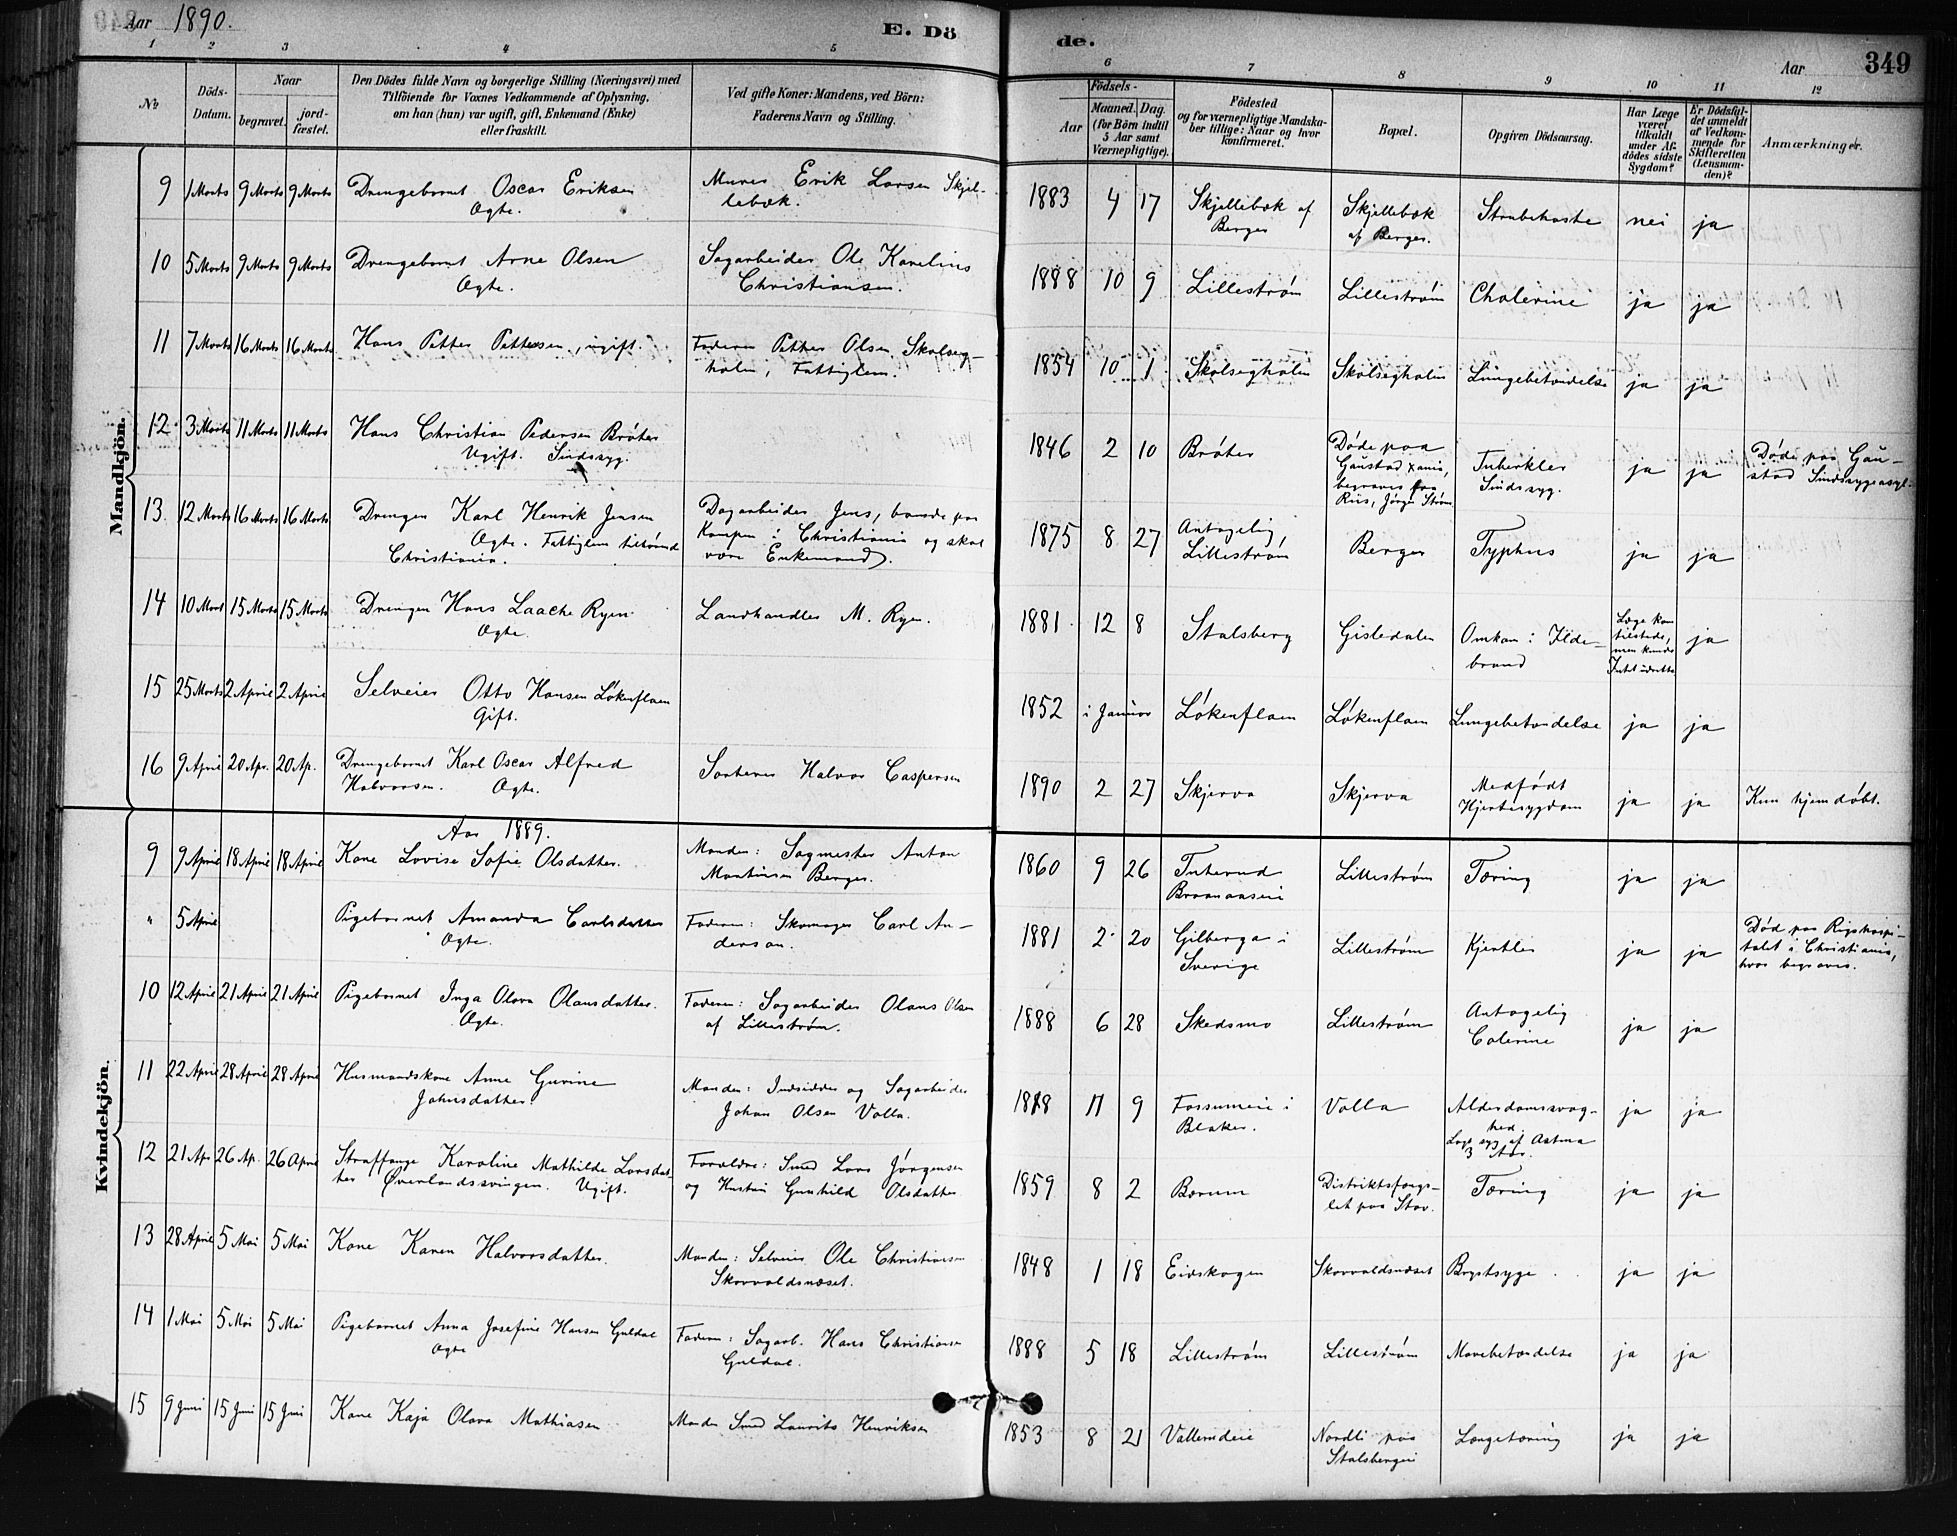 Aar 1890.
E. Dö
de.
Aar
349
1 2 3 4 5 6 7 8 9 10 11 12
No
Döds-Datum.
Naar
begravet.
jord-fæstet.
Den Dödes fulde Navn og borgerlige Stilling (Næringsvei) med
Tilföiende for Voxnes Vedkommende af Oplysning,
om han (hun) var ugift, gift, Enkemand (Enke)
eller fraskilt.
Ved gifte Koner: Mandens, ved Börn:
Faderens Navn og Stilling.
Födsels-
Aar
Maaned. Dag.
(for Börn indtil
5 Aar samt
Værnepligtige).
Födested
og for værnepligtige Mandska-
ber tillige: Naar og hvor
konfirmeret.
Bopæl.
Opgiven Dödsaarsag.
Har Læge
været
tilkaldt
under Af-
dödes sidste
Sygdom?
Er Dödsfal-
det anmeldt
af Vedkom-
mende for
Skifteretten
(Lensman-
den)?
Anmærkninger.
Mandkjön.
9 1 Marts 9 Marts 9 Marts Drengebarnet Oscar Eriksen Murer Erik Larsen Skjel- 1883 4 17 Skjellebæk af Skjellebæk Strubehoste nei ja
Ægte. lebæk. Berger af Berger.
10 5 Marts 9 Marts 9 Marts Drengebarnet Arne Olsen Sagarbeider Ole Karelius 1888 10 9 Lillestrøm Lillestrøm Cholerine ja ja
Ægte. Christiansen.
11 7 Marts 16 Marts 16 Marts Hans Petter Pettersen, ugift. Faderen Petter Olsen Skolseg- 1854 10 1 Skolsegholm Skolsegholm Lungebetændelse ja ja
holm, Fattiglem.
12 3 Marts 11 Marts 11 Marts Hans Christian Pedersen Bråter 1846 2 10 Bråter Døde paa Tuberkler ja ja Døde paa Gau-
Ugift. Sindssyg. Gaustad begraves paa Riis, Sindssyg. stad Sindssygeasyl.
13 12 Marts 16 Marts 16 Marts Drengen Karl Henrik Jensen Dagarbeider Jens, boende paa 1875 8 27 Antagelig Berger Typhus ja ja
Ægte. Fattiglem tilhørende Kampen i Christiania og skal Lillestrøm
Christiania. være Enkemand).
14 10 Mart 15 Marts 15 Marts Drengen Hans Laache Ryen Landhandler M. Ryen. 1881 12 8 Stalsberg Gisledalen Omkom i Ilde- Læge kom ja
Ægte. brand tilstede, men kunde Intet udrette
15 25 Marts 2 April 2 April Selveier Otto Hansen Løkenflaen 1852 i Januar Løkenflaen Løkenflaen Lungebetændelse ja ja
Gift.
16 9 April 20 Apr. 20 Ap. Drengebarnet Karl Oscar Alfred Sorterer Halvor Caspersen 1890 2 27 Skjerva Skjerva Medfødt ja ja Kun hjemdøbt.
Halvorsen. Ægte. Hjertesygdom
Kvindekjön.
Aar 1889.
9 9 April 18 April 18 April Kone Lovise Sofie Olsdatter. Manden: Sagmester Anton 1860 9 26 Tuterud Lillestrøm Tæring ja ja
Martinsen Berger.
" 5 April Pigebarnet Amanda Carlsdatter Faderen: Skomager Carl An- 1881 2 20 Gilberga i Lillestrøm Kjertler ja ja Død paa Rigshospi-
Ægte. derson. Sverige talet i Christiania,
hvor begraves.
10 12 April 21 April 21 April Pigebarnet Inga Olava Olausdatter. Faderen: Sagarbeider Olaus Olsen 1888 6 28 Skedsmo Lillestrøm Antagelig ja ja
Ægte. af Lillestrøm. Colerine
11 22 April 28 April 28 April Husmandskone Anne Gurine Manden: Indsidder og Sagarbeider 1818 11 9 Fossumeie i Volla Alderdomssvag- ja ja
Johnsdatter Johan Olsen Volla. Blaker. hed
Lagt syg af Astma 3 Aar.
12 21 Apr 26 Ap. 26 April Straffange Karoline Mathilde Larsdat- Forældre: Smed Lars Jørgensen 1859 8 2 Bærum Distriktsfængs- Tæring ja ja
ter Øverlandssvingen. Ugift. og Hustru Gunhild Olsdatter let paa Stav.
13 28 April 5 Mai 5 Mai Kone Karen Halvorsdatter. Manden: Selveier Ole Christiansen 1848 1 18 Eidskogen Skovvoldsnæset Brystsyge ja ja
Skovvoldsnæset.
14 1 Mai 5 Mai 5 Mai Pigebarnet Anna Josefine Hansen Guldal Faderen: Sagarb. Hans Christiansen 1888 5 18 Lillestrøm Lillestrøm Mavebetændelse ja ja
Ægte Guldal.
15 9 Juni 15 Juni 15 Juni Kone Kaja Olava Mathiasen Manden Smed Laurits Henriksen 1853 8 21 Vallerudeie Nordli paa Lungetæring ja ja
Stalsbergeie